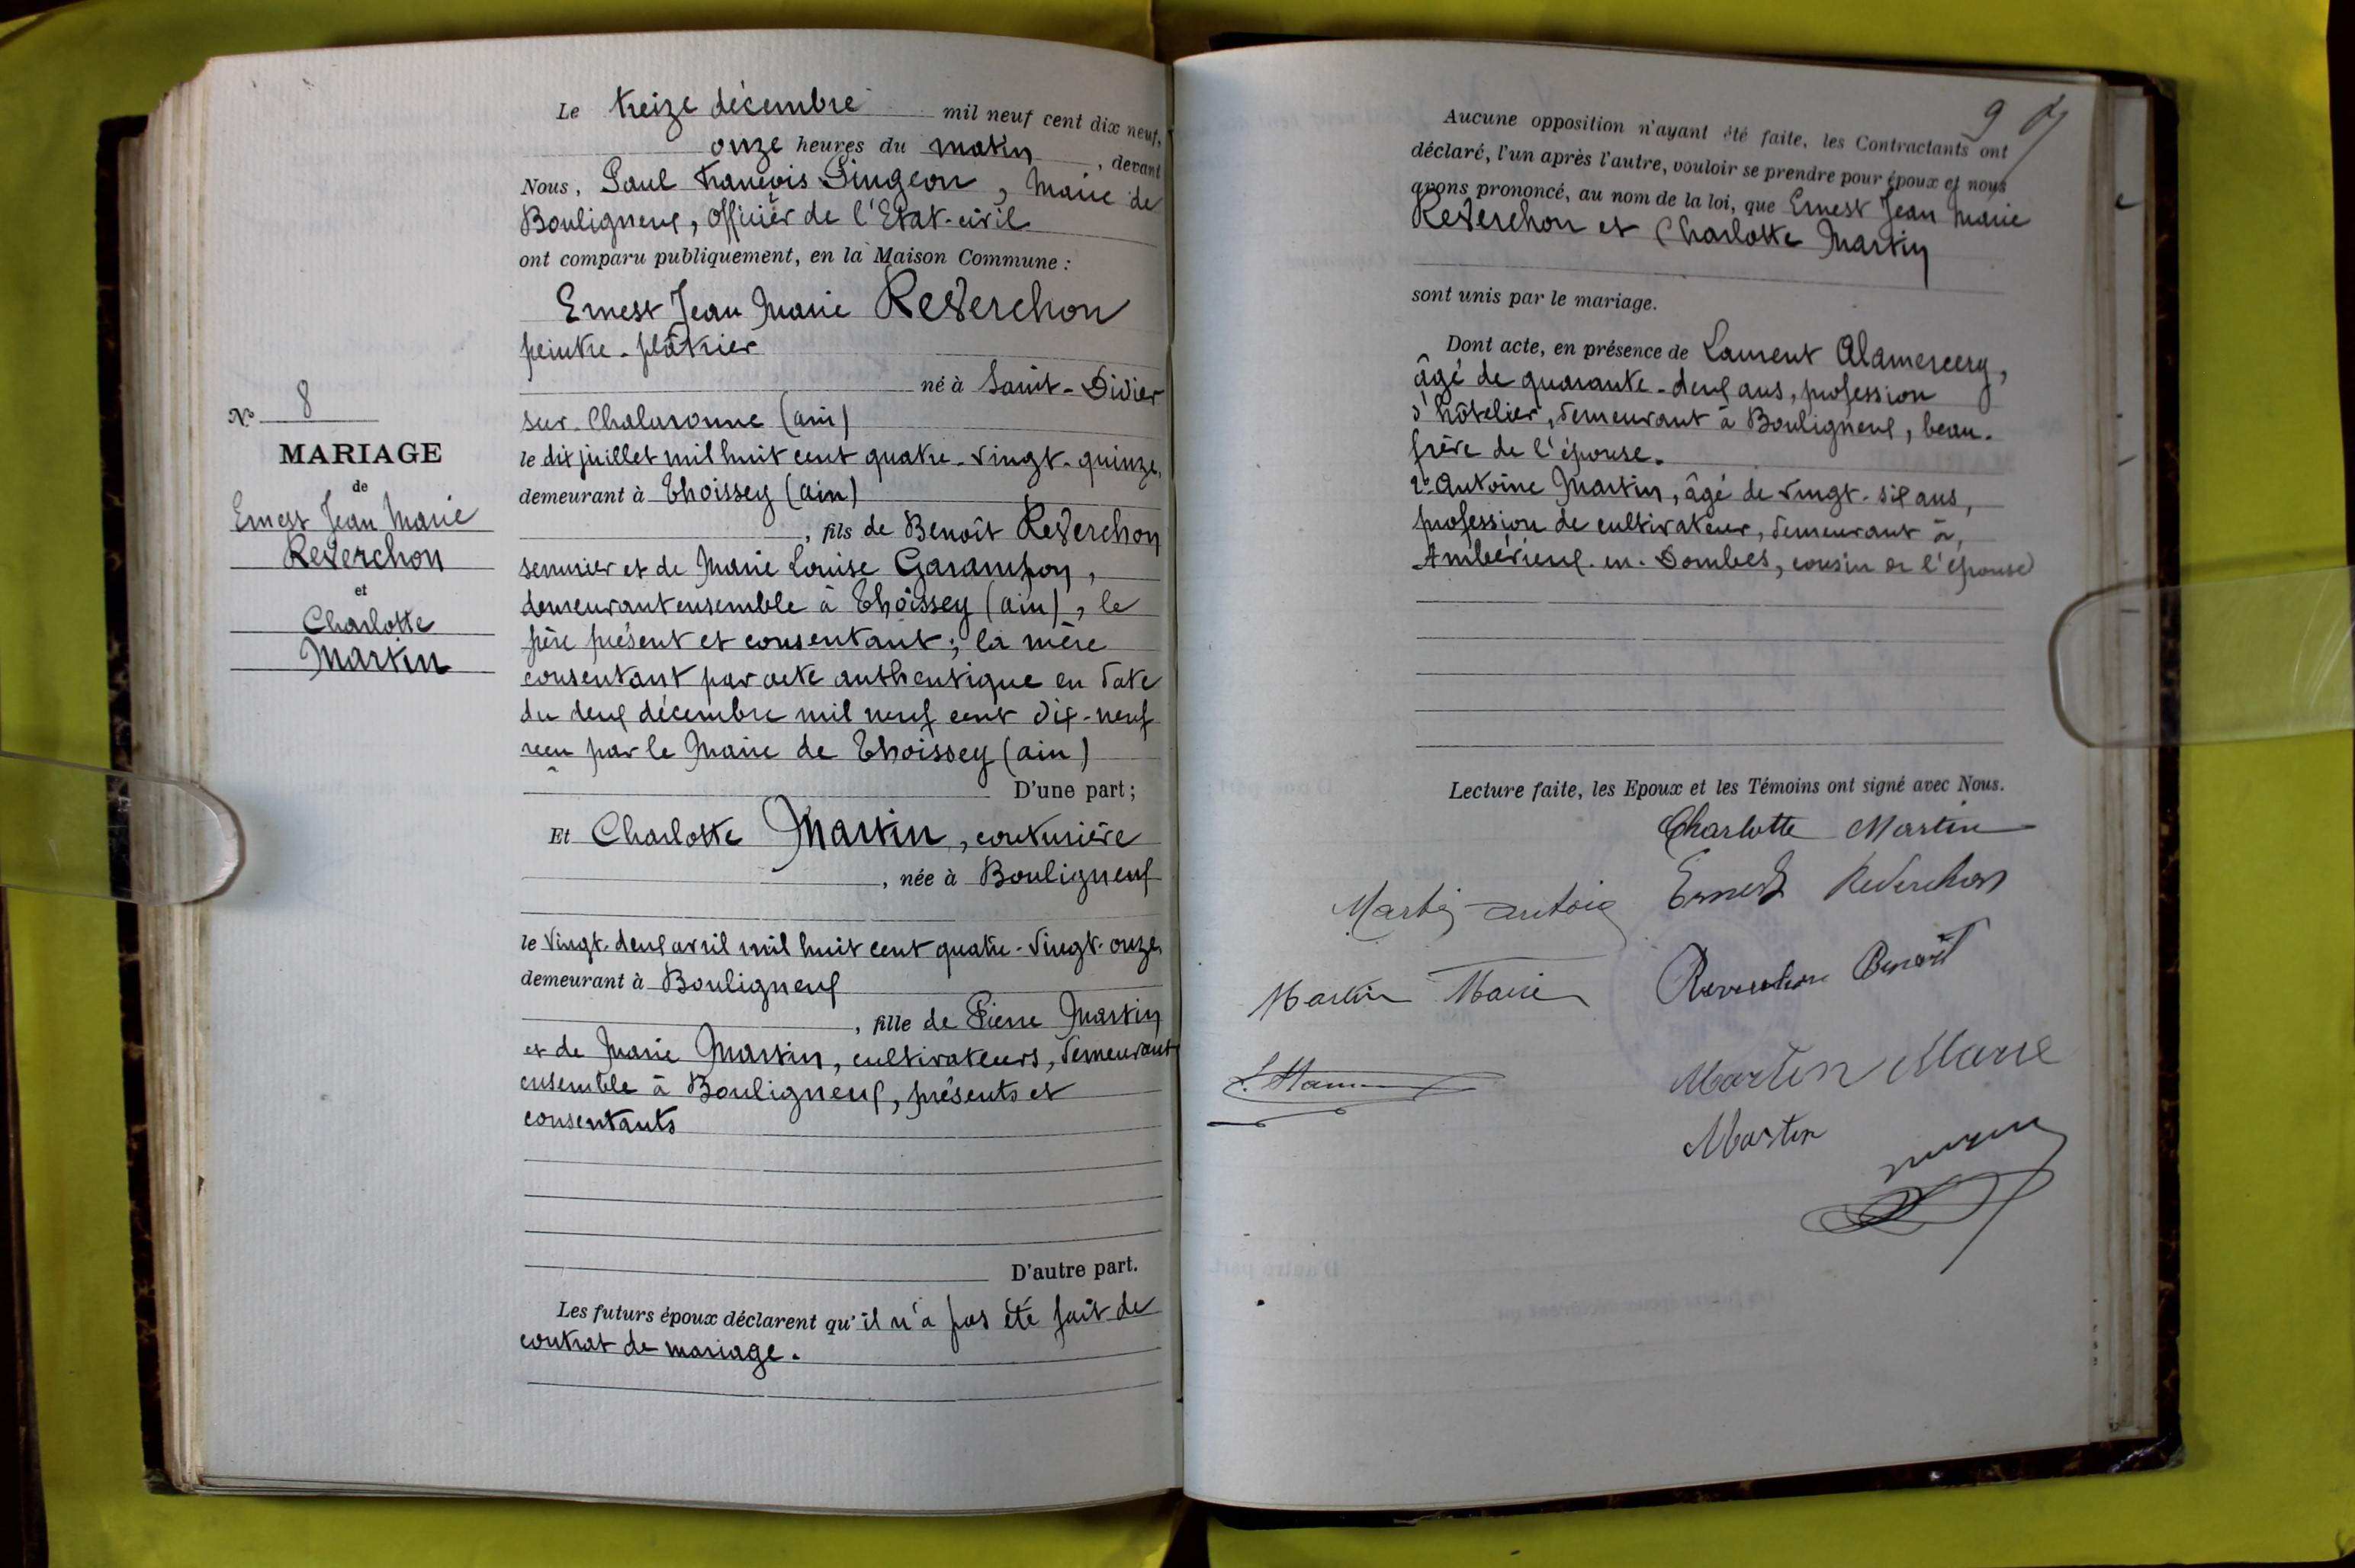 Le treize décembre mil neuf cent dix neuf,
onze heures du matin, devant
Nous, Paul François Pingeon, Maire de
Bouligneux, Officier de l'Etat-civil
ont comparu publiquement, en la Maison Commune :
Ernest Jean Marie Reverchon
peintre-plâtrier
né à Saint-Didier
sur-Chalaronne (ain)
le dix juillet mil huit cent quatre-vingt-quinze,
demeurant à Thoissey (ain)
, fils de Benoît Reverchon
serrurier et de Marie Louise Garampon,
demeurant ensemble à Thoissey (ain), le
père présent et consentant; la mère
consentant par acte authentique en date
du deux décembre mil neuf cent dix-neuf
reçu par le Maire de Thoissey (ain)
D'une part;
Et Charlotte Martin, couturière
, née à Bouligneux
le vingt-deux avril mil huit cent quatre-vingt-onze,
demeurant à Bouligneux
, fille de Pierre Martin
et de Marie Martin, cultivateurs, demeurant
ensemble à Bouligneux, présents et
consentants
D'autre part.
Les futurs époux déclarent qu'il n'a pas été fait de
contrat de mariage.
N° 8
MARIAGE
de
Ernest Jean Marie
Reverchon
et
Charlotte
Martin
9
Aucune opposition n'ayant été faite, les Contractants ont
déclaré, l'un après l'autre, vouloir se prendre pour époux et nous
avons prononcé, au nom de la loi, que Ernest Jean Marie
Reverchon et Charlotte Martin
sont unis par le mariage.
Dont acte, en présence de Laurent Alamercery,
âgé de quarante-deux ans, profession
d'hôtelier, demeurant à Bouligneux, beau-
frère de l'épouse.
2° Antoine Martin, âgé de vingt-six ans,
profession de cultivateur, demeurant à,
Ambérieux-en-Dombes, cousin de l'épouse
Lecture faite, les Epoux et les Témoins ont signé avec Nous.
Charlotte Martin
Martin antoine Ernest Reverchon
Martin Marie Reverchon Benoît
Martin Marie
Martin